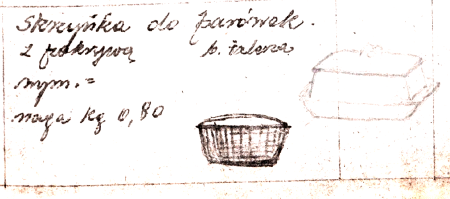 Skrzynka do parówek.
z pokrywą b. żelaza
wym. =
waga kg 0,80